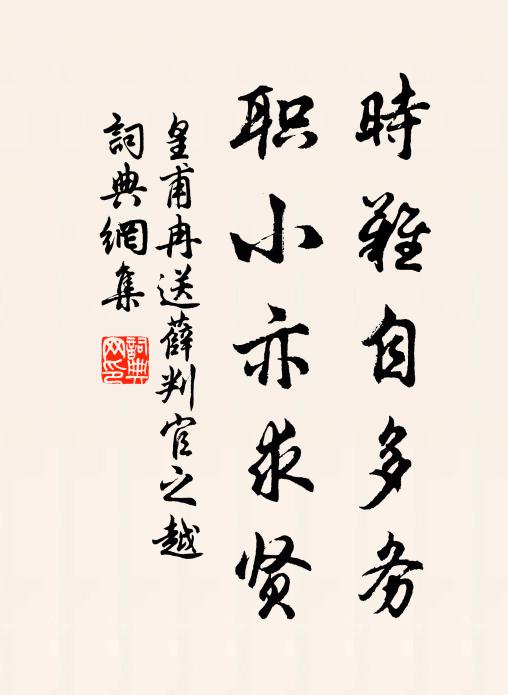 時難自多务
职小亦求贤
皇甫冉送薛判官之越
詞典網集
詞典网印